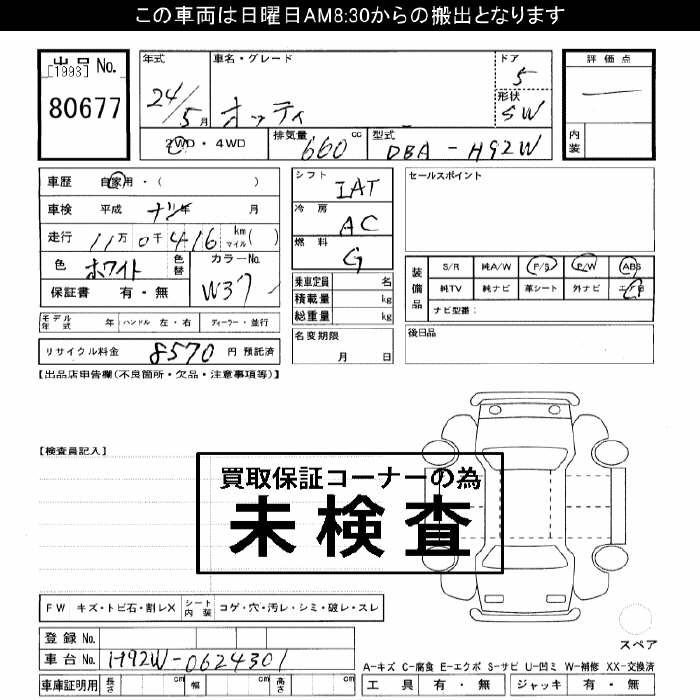 この車両は日曜日AM8:30からの搬出となります
出品 No.
[1993]
80677
年式 24/5月
車名・グレード オッティ
ドア 5
形状 SW
2WD・4WD
排気量 660 cc
型式 DBA-H92W
評価点
内装
車歴 自家用・( )
車検 平成 ナシ年 月
走行 11万0千416 km マイル( )
色 ホワイト 色替
カラーNo. W37
保証書 有・無
モデル年式 年 ハンドル 左・右 ディーラー・並行
リサイクル料金 8570 円 預託済
シフト IAT
冷房 AC
燃料 G
乗車定員 名
積載量 kg
総重量 kg
名変期限 月 日
セールスポイント
装備品
S/R 純A/W P/S P/W ABS
純TV 純ナビ 革シート 外ナビ
ナビ型番:
後日品
【出品店申告欄(不良箇所・欠品・注意事項等)】
【検査員記入】
買取保証コーナーの為
未検査
FW キズ・トビ石・割レX シート内装 コゲ・穴・汚レ・シミ・破レ・スレ
登録 No.
車台 No. H92W-0624301
車庫証明用 長さ cm 幅 cm 高さ cm
スペア
A-キズ C-腐食 E-エクボ S-サビ U-凹ミ W-補修 XX-交換済
工具 有・無 ジャッキ 有・無